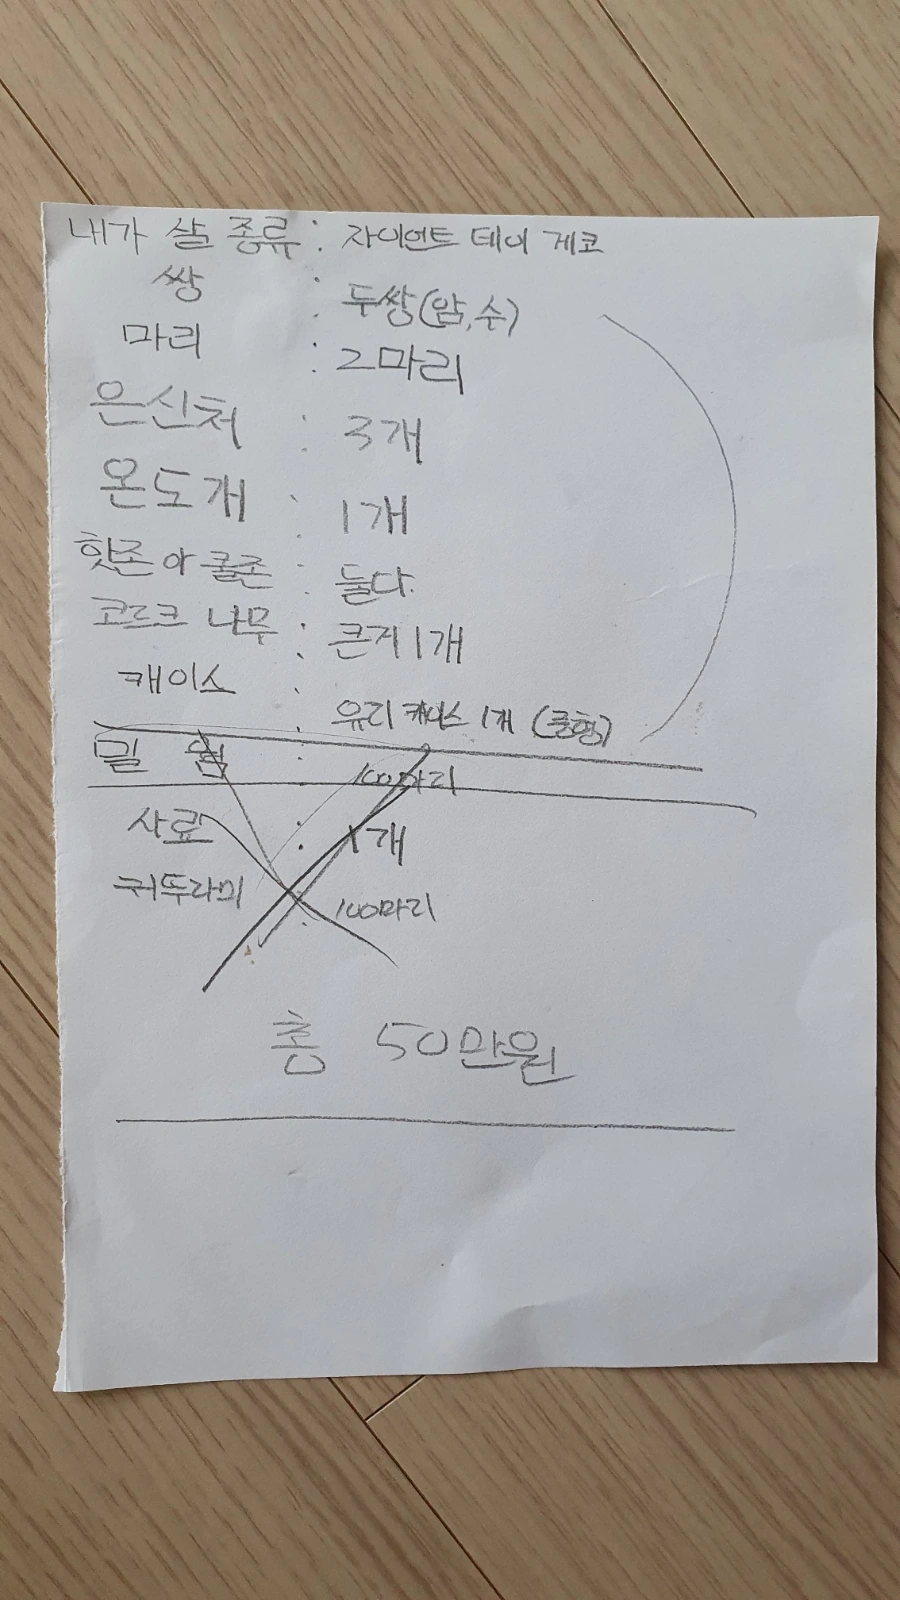 내가 살 종류 : 자이언트 테이 게코
쌍 : 두쌍(암,수)
마리 : 2마리
은신처 : 3개
온도개 : 1개
핫존 아 쿨존 : 둘다.
코르크 나무 : 큰거 1개
캐이스 : 유리 캐이스 1개 (중형)
밀 웜 : 100마리
사료 : 1개
귀뚜라미 : 100마리
총 50만원